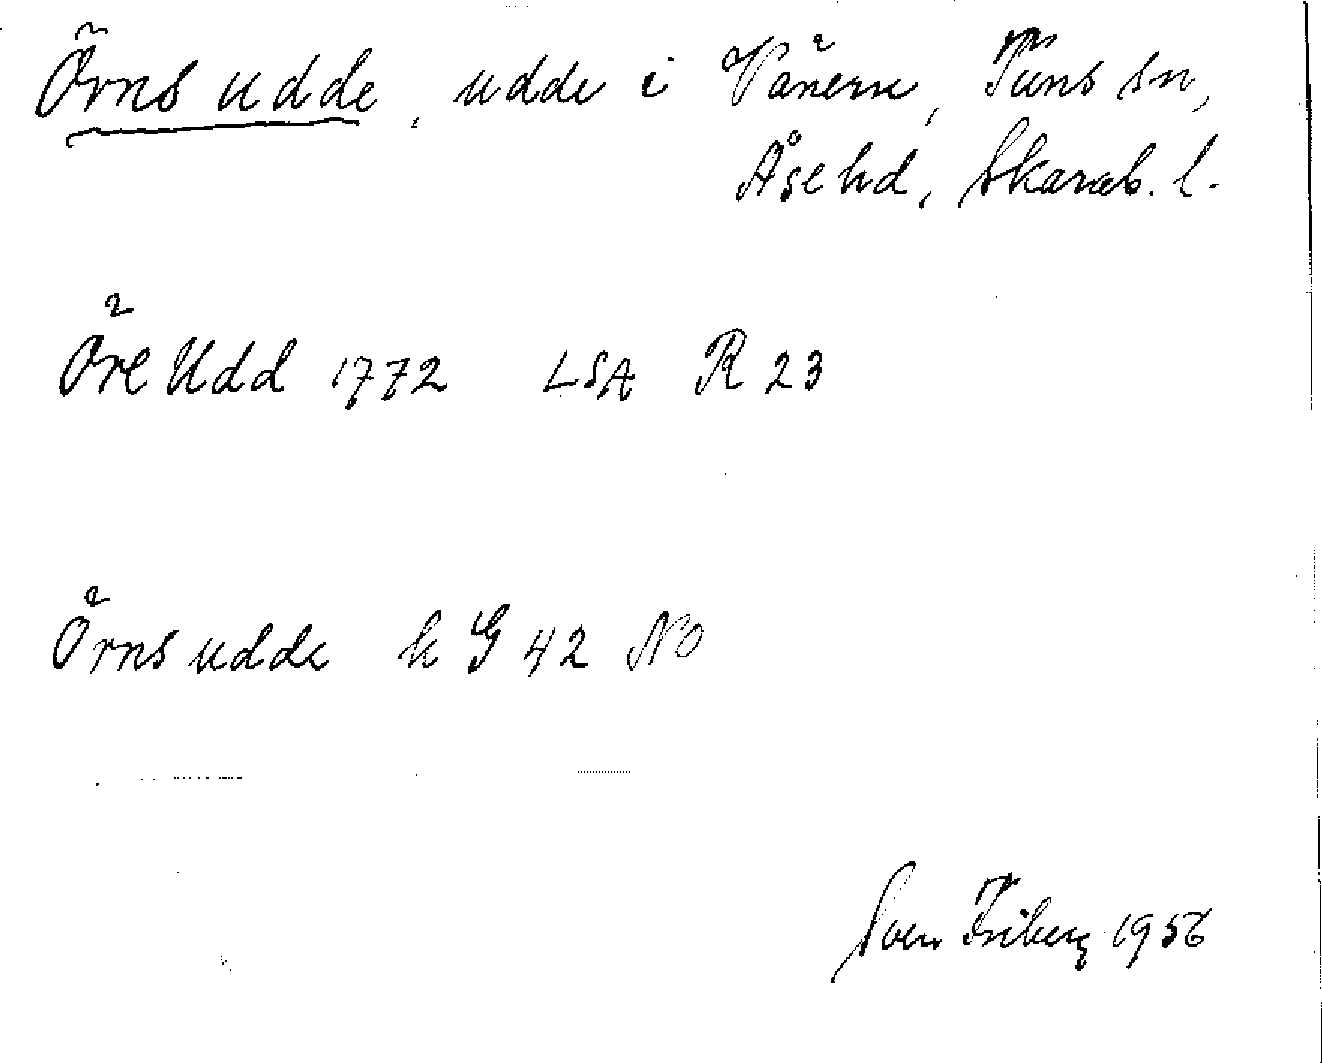 Örns udde, udde i Vänern, Tuns sn,
Åse hd, Skarab. l.
Öre Udd 1772 LSA R 23
Örns udde k G 42 NO
Sven Friberg 1956